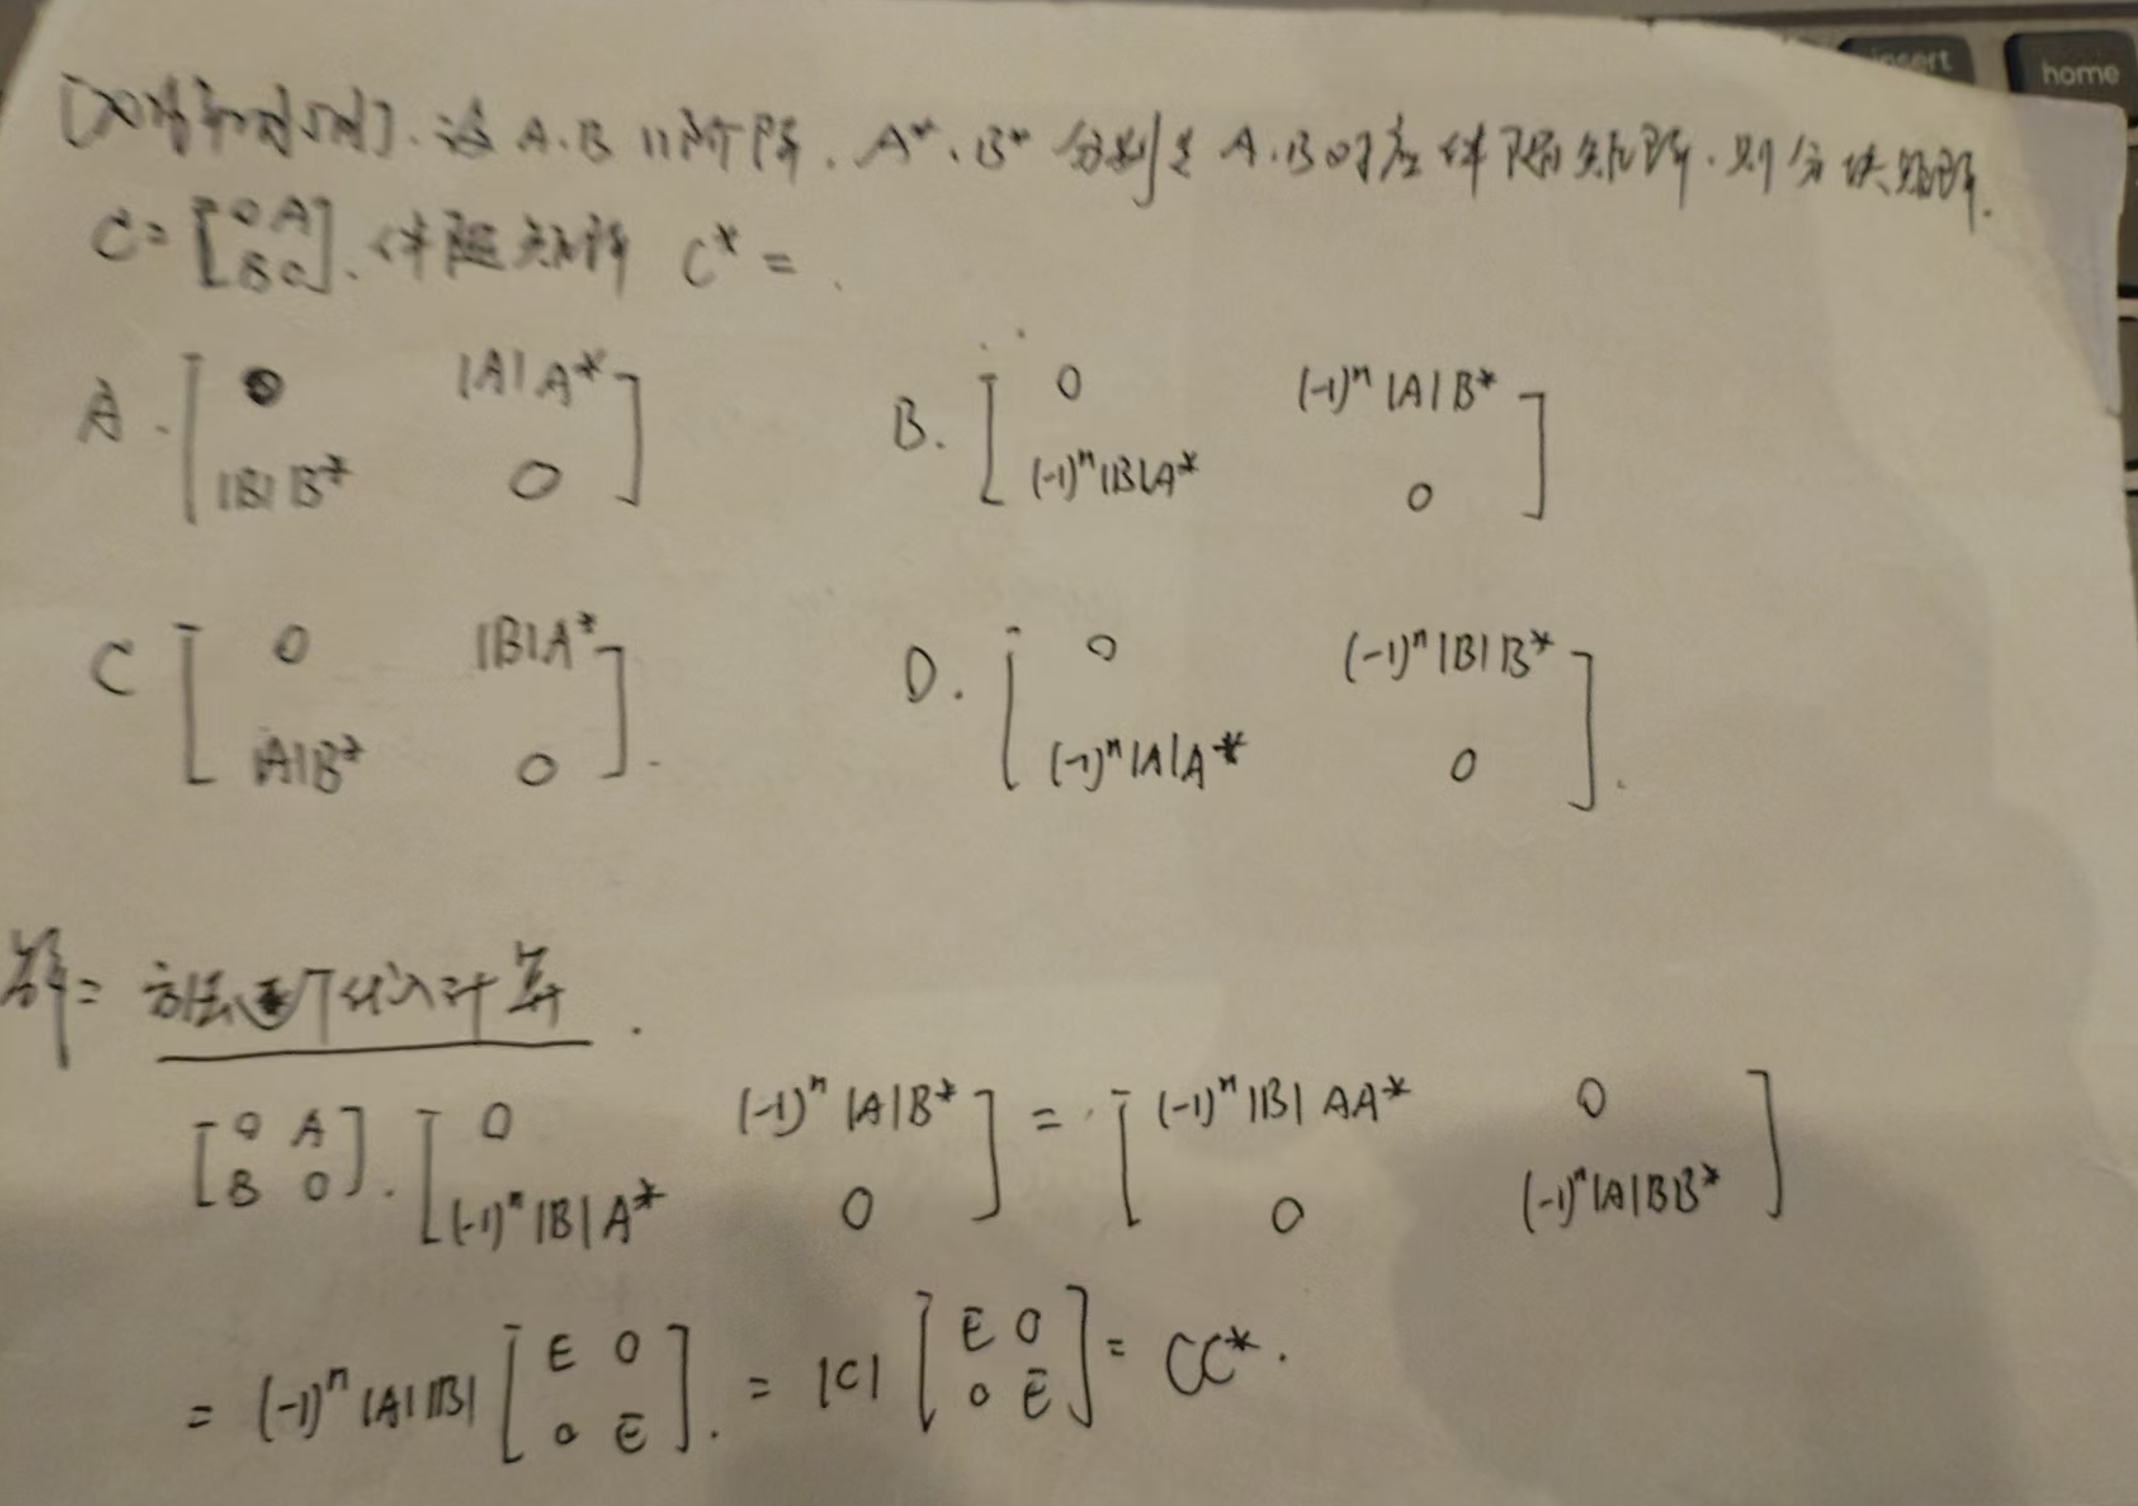 insert
home
设 A.B n阶阵. A*、B* 分别是 A.B对应伴随矩阵. 则分块矩阵.
C= [0 A
B 0]. 伴随矩阵 C* =
A. [0 |A|A*
|B|B* 0]
B. [0 (-1)ⁿ|A|B*
(-1)ⁿ|B|A* 0]
C [0 |B|A*
|A|B* 0].
D. [0 (-1)ⁿ|B|B*
(-1)ⁿ|A|A* 0].
解= 方法逐个代入计算.
[0 A
B 0]. [0 (-1)ⁿ|A|B*
(-1)ⁿ|B|A* 0] = [(-1)ⁿ|B|AA* 0
0 (-1)ⁿ|A|BB*]
= (-1)ⁿ|A||B| [E 0
0 E]. = |C| [E 0
0 E] = CC*.